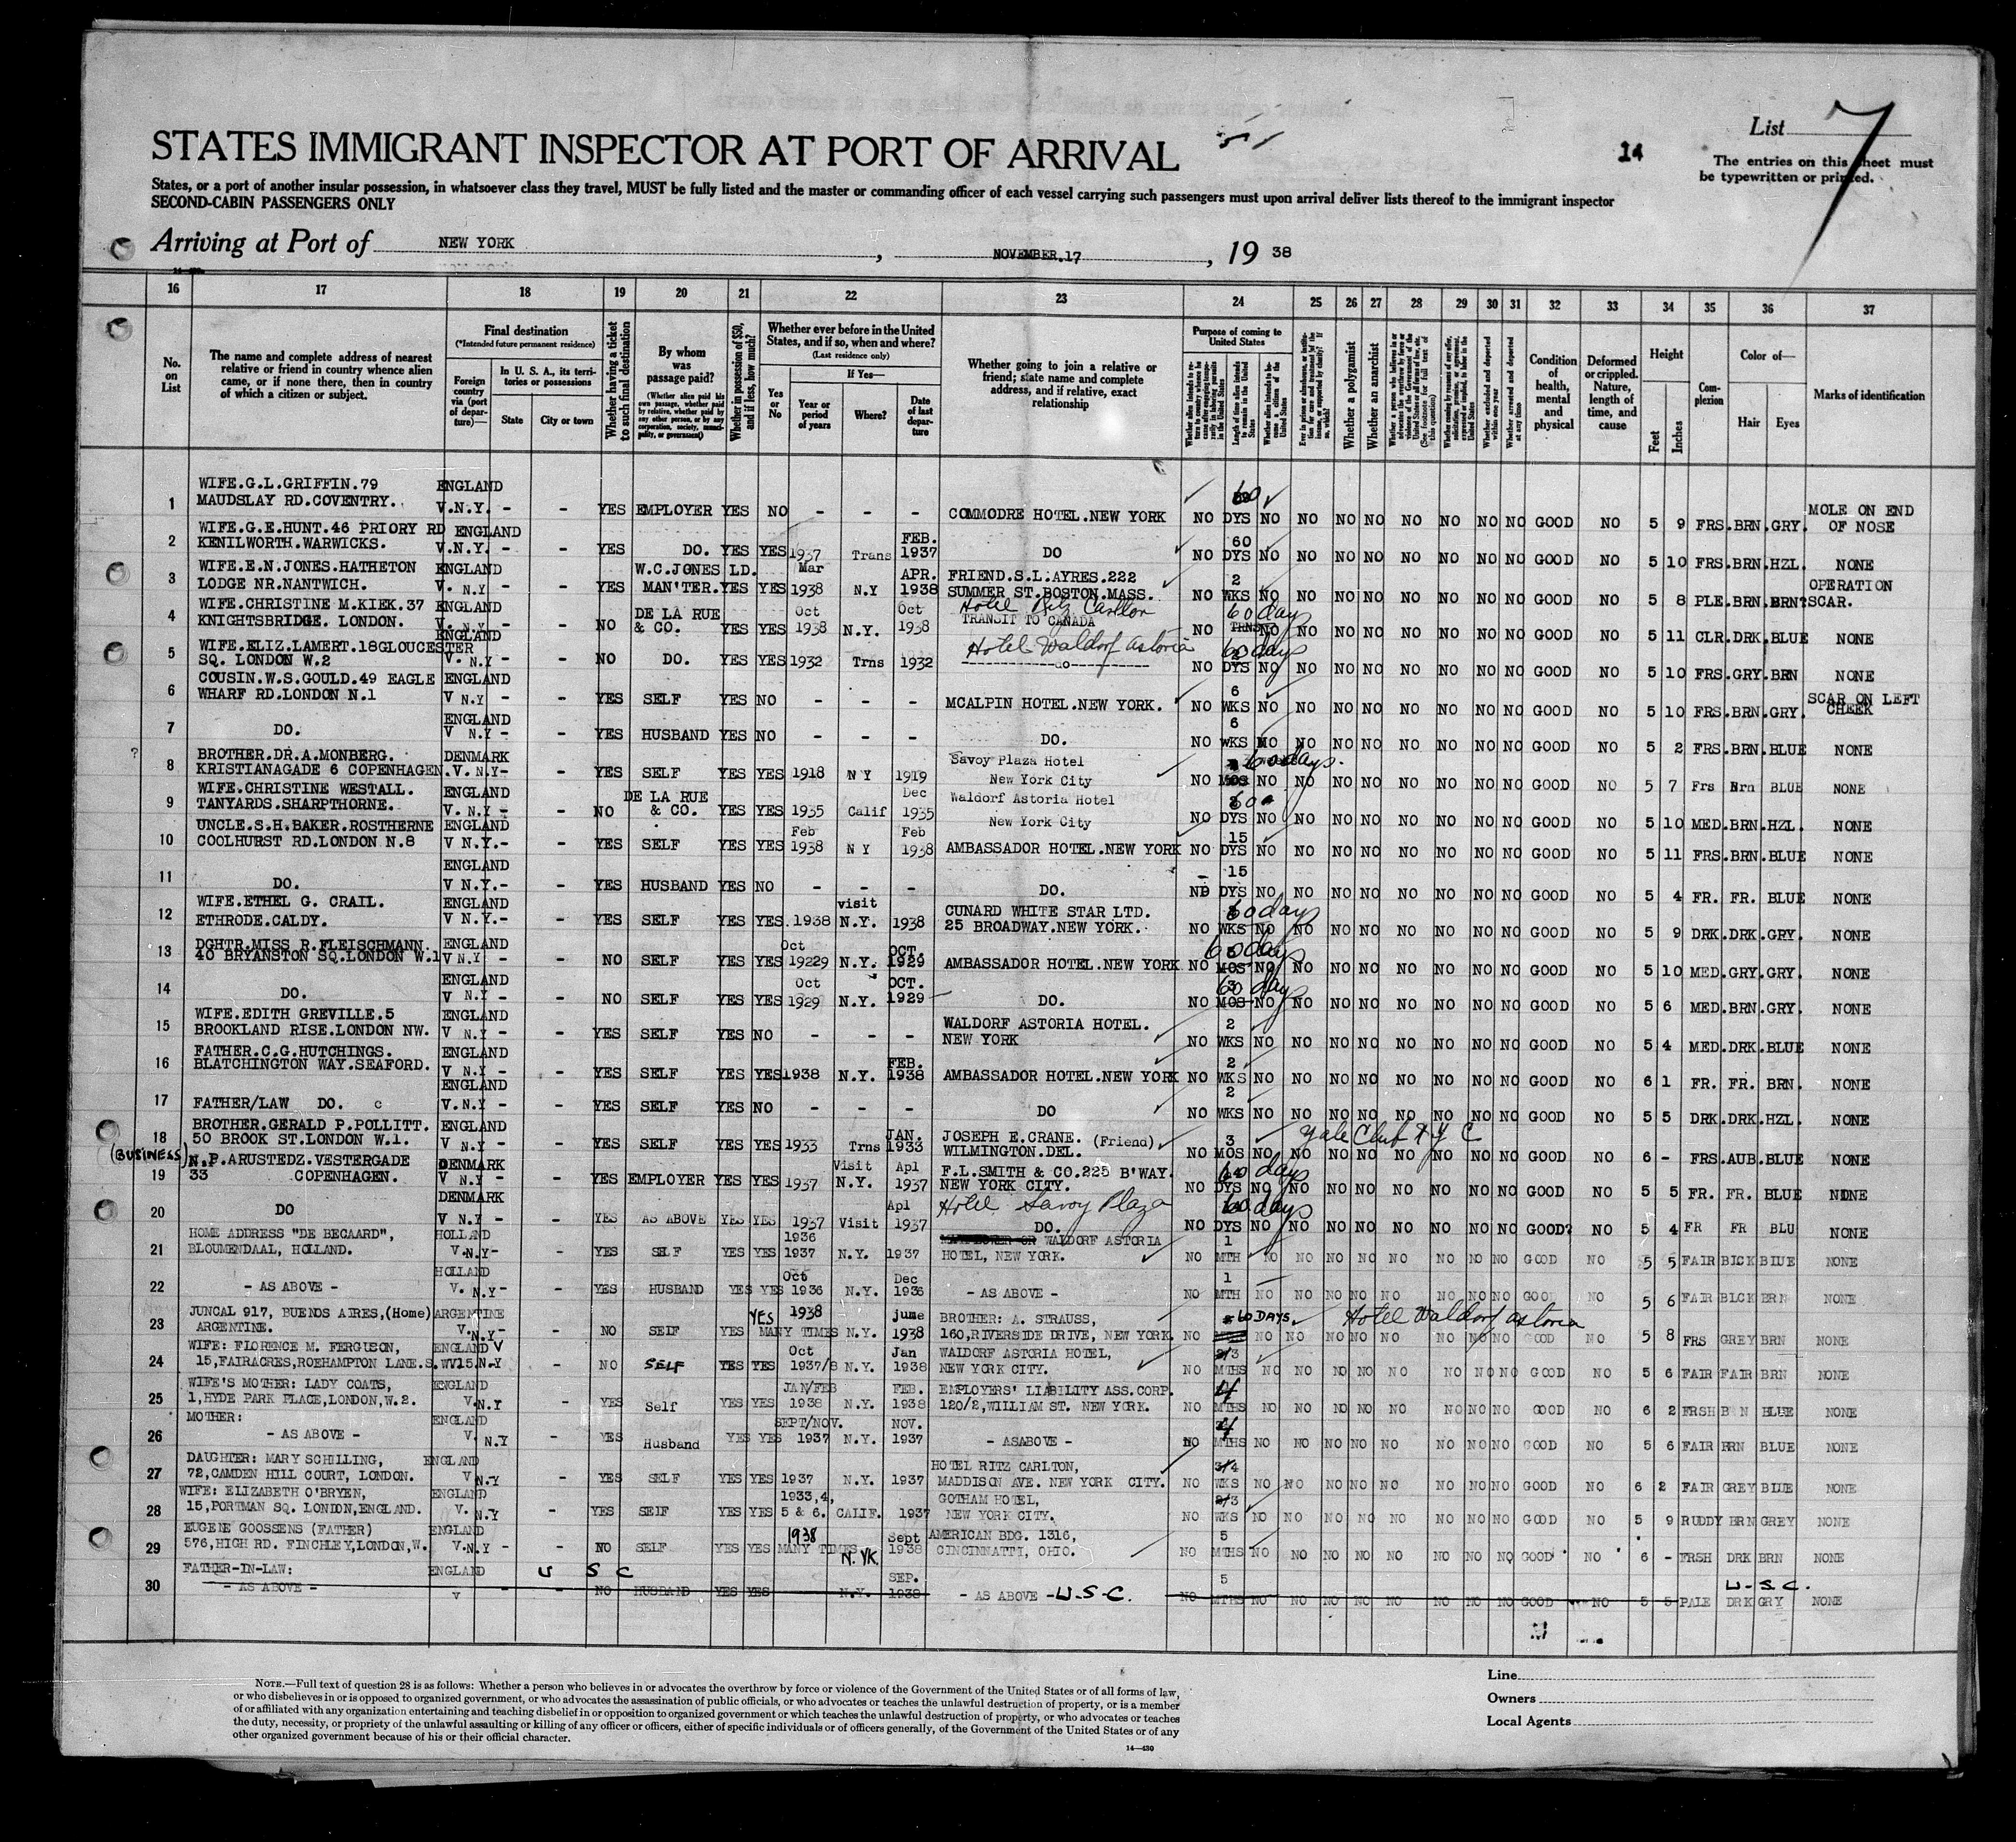 List 7
14
STATES IMMIGRANT INSPECTOR AT PORT OF ARRIVAL
The entries on this sheet must
be typewritten or printed.
States, or a port of another insular possession, in whatsoever class they travel, MUST be fully listed and the master or commanding officer of each vessel carrying such passengers must upon arrival deliver lists thereof to the immigrant inspector
SECOND-CABIN PASSENGERS ONLY
Arriving at Port of NEW YORK, NOVEMBER.17, 19 38
16 17 18 19 20 21 22 23 24 25 26 27 28 29 30 31 32 33 34 35 36 37
No. on List
The name and complete address of nearest relative or friend in country whence alien came, or if none there, then in country of which a citizen or subject.
Final destination
(*Intended future permanent residence)
Foreign country via (port of departure)—
In U. S. A., its territories or possessions
State
City or town
Whether having a ticket to such final destination
By whom was passage paid?
(Whether alien paid his own passage, whether paid by relative, whether paid by any other person, or by any corporation, society, municipality, or government)
Whether in possession of $50, and if less, how much?
Whether ever before in the United States, and if so, when and where?
(Last residence only)
Yes or No
If Yes—
Year or period of years
Where?
Date of last departure
Whether going to join a relative or friend; state name and complete address, and if relative, exact relationship
Purpose of coming to United States
Length of time alien intends to remain in the United States
Whether alien intends to become a citizen of the United States
Whether a polygamist
Whether an anarchist
Whether excluded and deported within one year
Whether arrested and deported at any time
Condition of health, mental and physical
Deformed or crippled. Nature, length of time, and cause
Height
Feet
Inches
Complexion
Color of—
Hair
Eyes
Marks of identification
1 WIFE.G.L.GRIFFIN.79 MAUDSLAY RD.COVENTRY. ENGLAND V.N.Y. - - YES EMPLOYER YES NO - - - COMMODRE HOTEL.NEW YORK NO 60 DYS NO NO NO NO NO NO NO NO GOOD NO 5 9 FRS.BRN.GRY. MOLE ON END OF NOSE
2 WIFE.G.E.HUNT.46 PRIORY RD KENILWORTH.WARWICKS. ENGLAND V.N.Y. - - YES DO. YES YES 1937 Trans FEB. 1937 DO NO 60 DYS NO NO NO NO NO NO NO NO GOOD NO 5 10 FRS.BRN.HZL. NONE
3 WIFE.E.N.JONES.HATHETON LODGE NR.NANTWICH. ENGLAND V. N.Y - - YES W.C.JONES LD. MAN'TER. YES YES Mar 1938 N.Y APR. 1938 FRIEND.S.L.AYRES.222 SUMMER ST.BOSTON.MASS. NO 2 WKS NO NO NO NO NO NO NO NO GOOD NO 5 8 PLE.BRN.BRN? OPERATION SCAR.
4 WIFE.CHRISTINE M.KIEK.37 KNIGHTSBRIDGE. LONDON. ENGLAND V. N.Y - - NO DE LA RUE & CO. YES YES Oct 1938 N.Y. Oct 1938 Hotel Ritz Carlton TRANSIT TO CANADA NO 60 days TRNS NO NO NO NO NO NO NO NO GOOD NO 5 11 CLR.DRK.BLUE NONE
5 WIFE.ELIZ.LAMERT.18GLOUCESTER SQ. LONDON W.2 ENGLAND V. N.Y - - NO DO. YES YES 1932 Trns 1932 Hotel Waldorf Astoria do NO 60 days 2 DYS NO NO NO NO NO NO NO NO GOOD NO 5 10 FRS.GRY.BRN NONE
6 COUSIN.W.S.GOULD.49 EAGLE WHARF RD.LONDON N.1 ENGLAND V N.Y - - YES SELF YES NO - - - MCALPIN HOTEL.NEW YORK. NO 6 WKS NO NO NO NO NO NO NO NO GOOD NO 5 10 FRS.BRN.GRY. SCAR ON LEFT CHEEK
7 DO. ENGLAND V N.Y - - YES HUSBAND YES NO - - - DO. NO 6 WKS NO NO NO NO NO NO NO NO GOOD NO 5 2 FRS.BRN.BLUE NONE
? 8 BROTHER.DR.A.MONBERG. KRISTIANAGADE 6 COPENHAGEN. DENMARK V. N.Y- - YES SELF YES YES 1918 N Y 1919 Savoy Plaza Hotel New York City NO 60 days. MOS NO NO NO NO NO NO NO NO GOOD NO 5 7 Frs Brn BLUE NONE
9 WIFE.CHRISTINE WESTALL. TANYARDS.SHARPTHORNE. ENGLAND V. N.Y - - NO DE LA RUE & CO. YES YES 1935 Calif Dec 1935 Waldorf Astoria Hotel New York City NO 60 DYS NO NO NO NO NO NO NO NO GOOD NO 5 10 MED.BRN.HZL. NONE
10 UNCLE.S.H.BAKER.ROSTHERNE COOLHURST RD.LONDON N.8 ENGLAND V N.Y.- - YES SELF YES YES Feb 1938 N Y Feb 1938 AMBASSADOR HOTEL.NEW YORK NO 15 DYS NO NO NO NO NO NO NO NO GOOD NO 5 11 FRS.BRN.BLUE NONE
11 DO. ENGLAND V N.Y.- - YES HUSBAND YES NO - - - DO. NO 15 DYS NO NO NO NO NO NO NO NO GOOD NO 5 4 FR. FR. BLUE NONE
12 WIFE.ETHEL G. CRAIL. ETHRODE.CALDY. ENGLAND V N.Y.- - YES SELF YES YES 1938 visit N.Y. 1938 CUNARD WHITE STAR LTD. 25 BROADWAY.NEW YORK. NO 60 days WKS NO NO NO NO NO NO NO NO GOOD NO 5 9 DRK.DRK.GRY. NONE
13 DGHTR.MISS R.FLEISCHMANN. 40 BRYANSTON SQ.LONDON W.1 ENGLAND V N.Y - - NO SELF YES YES Oct 19229 N.Y. OCT. 1929 AMBASSADOR HOTEL.NEW YORK NO 60 days MOS NO NO NO NO NO NO NO NO GOOD NO 5 10 MED.GRY.GRY. NONE
14 DO. ENGLAND V N.Y - - NO SELF YES YES Oct 1929 N.Y. OCT. 1929 DO. NO 60 days MOS NO NO NO NO NO NO NO NO GOOD NO 5 6 MED.BRN.GRY. NONE
15 WIFE.EDITH GREVILLE.5 BROOKLAND RISE.LONDON NW. ENGLAND V N.Y - - YES SELF YES NO - - - WALDORF ASTORIA HOTEL. NEW YORK NO 2 WKS NO NO NO NO NO NO NO NO GOOD NO 5 4 MED.DRK.BLUE NONE
16 FATHER.C.G.HUTCHINGS. BLATCHINGTON WAY.SEAFORD. ENGLAND V N.Y - - YES SELF YES YES 1938 N.Y. FEB. 1938 AMBASSADOR HOTEL.NEW YORK NO 2 WKS NO NO NO NO NO NO NO NO GOOD NO 6 1 FR. FR. BRN. NONE
17 FATHER/LAW DO. ENGLAND V.N.Y - - YES SELF YES NO - - - DO NO 2 WKS NO NO NO NO NO NO NO NO GOOD NO 5 5 DRK.DRK.HZL. NONE
18 BROTHER.GERALD P.POLLITT. 50 BROOK ST.LONDON W.1. ENGLAND V N.Y - - YES SELF YES YES 1933 Trns JAN. 1933 JOSEPH E.CRANE. (Friend) WILMINGTON.DEL. NO 3 MOS NO Yale Club N Y C NO NO NO NO NO NO NO GOOD NO 6 - FRS.AUB.BLUE NONE
(BUSINESS) 19 N.P.ARUSTEDZ.VESTERGADE 33 COPENHAGEN. DENMARK V N.Y - - YES EMPLOYER YES YES 1937 Visit N.Y. Apl 1937 F.L.SMITH & CO.225 B'WAY. NEW YORK CITY. NO 60 days DYS NO NO NO NO NO NO NO NO GOOD NO 5 5 FR. FR. BLUE NONE
20 DO DENMARK V N.Y - - YES AS ABOVE YES YES 1937 Visit Apl 1937 Hotel Savoy Plaza DO. NO 60 days DYS NO NO NO NO NO NO NO NO GOOD? NO 5 4 FR FR BLU NONE
21 HOME ADDRESS "DE BECAARD", BLOUMENDAAL, HOLLAND. HOLLAND V.N.Y- - YES SELF YES YES 1936 1937 N.Y. 1937 WALDORF ASTORIA HOTEL, NEW YORK. NO 1 MTH NO NO NO NO NO NO NO NO GOOD NO 5 5 FAIR BLCK BLUE NONE
22 - AS ABOVE - HOLLAND V. N.Y- - YES HUSBAND YES YES Oct 1936 N.Y. Dec 1936 - AS ABOVE - NO 1 MTH NO NO NO NO NO NO NO GOOD NO 5 6 FAIR BLCK BRN NONE
23 JUNCAL 917, BUENOS AIRES,(Home) ARGENTINE. ARGENTINE V.N.Y- - NO SELF YES YES 1938 MANY TIMES N.Y. june 1938 BROTHER: A. STRAUSS, 160,RIVERSIDE DRIVE, NEW YORK. NO 60 DAYS. Hotel Waldorf Astoria NO NO NO NO NO NO NO NO GOOD NO 5 8 FRS GREY BRN NONE
24 WIFE: FLORENCE M. FERGUSON, 15,FAIRACRES,ROEHAMPTON LANE.S.W.15. ENGLAND V N.Y - NO SELF YES YES Oct 1937/8 N.Y. Jan 1938 WALDORF ASTORIA HOTEL, NEW YORK CITY. NO 3 MTHS NO NO NO NO NO NO NO NO GOOD NO 5 6 FAIR FAIR BRN NONE
25 WIFE'S MOTHER: LADY COATS, 1,HYDE PARK PLACE,LONDON,W.2. ENGLAND V.N.Y - YES Self YES YES JAN/FEB 1938 N.Y. FEB. 1938 EMPLOYERS' LIABILITY ASS.CORP. 120/2,WILLIAM ST. NEW YORK. NO 4 MTHS NO NO NO NO NO NO NO NO GOOD NO 6 2 FRSH BLUE NONE
26 MOTHER: - AS ABOVE - ENGLAND V. N.Y - YES Husband YES YES SEPT/NOV. 1937 N.Y. NOV. 1937 - ASABOVE - NO 4 MTHS NO NO NO NO NO NO NO NO GOOD NO 5 6 FAIR BRN BLUE NONE
27 DAUGHTER: MARY SCHILLING, 72,CAMDEN HILL COURT, LONDON. ENGLAND V N.Y - YES SELF YES YES 1937 N.Y. 1937 HOTEL RITZ CARLTON, MADDISON AVE. NEW YORK CITY. NO 3/4 WKS NO NO NO NO NO NO NO NO GOOD NO 6 2 FAIR GREY BLUE NONE
28 WIFE: ELIZABETH O'BRYEN, 15,PORTMAN SQ. LONDON,ENGLAND. ENGLAND V. N.Y - YES SELF YES YES 1933,4, 5 & 6. CALIF. 1937 GOTHAM HOTEL, NEW YORK CITY. NO 2/3 WKS NO NO NO NO NO NO NO NO GOOD NO 5 9 RUDDY BRN GREY NONE
29 EUGENE GOOSSENS (FATHER) 576,HIGH RD. FINCHLEY,LONDON,W. ENGLAND V.N.Y - - NO SELF YES YES 1938 MANY TIMES N.YK. Sept 1938 AMERICAN BDG. 1316, CINCINNATTI, OHIO. NO 5 MTHS NO NO NO NO NO NO NO NO GOOD NO 6 - FRSH DRK BRN NONE
30 FATHER-IN-LAW: - AS ABOVE - ENGLAND V U S C - NO HUSBAND YES YES N.Y. SEP. 1938 - AS ABOVE - U-S-C. NO 5 MTHS NO NO NO NO NO NO NO NO GOOD NO 5 5 PALE DRK GRY U-S-C. NONE
NOTE.—Full text of question 28 is as follows: Whether a person who believes in or advocates the overthrow by force or violence of the Government of the United States or of all forms of law,
or who disbelieves in or is opposed to organized government, or who advocates the assassination of public officials, or who advocates or teaches the unlawful destruction of property, or is a member
of or affiliated with any organization entertaining and teaching disbelief in or opposition to organized government or which teaches the unlawful destruction of property, or who advocates or teaches
the duty, necessity, or propriety of the unlawful assaulting or killing of any officer or officers, either of specific individuals or of officers generally, of the Government of the United States or of any
other organized government because of his or their official character.
14—430
Line
Owners
Local Agents